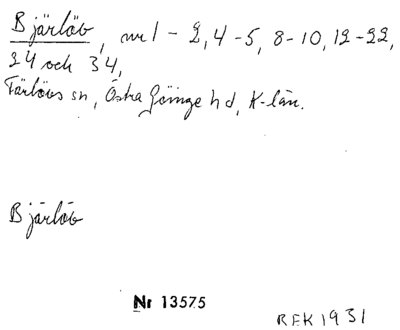 Bjärlöv, nr 1 - 2, 4 - 5, 8 - 10, 12 - 22,
24 och 34,
Färlövs sn, Östra Göinge hd, K-län.
Bjärlöv
Nr 13575
REK 1931